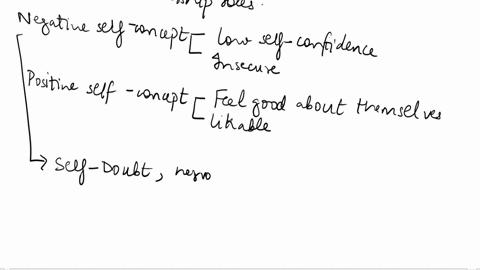 Negative self-concept [ Low self-confidence
Insecure
Positive self-concept [ Feel good about themselves
likable
→ Self-Doubt, nervo